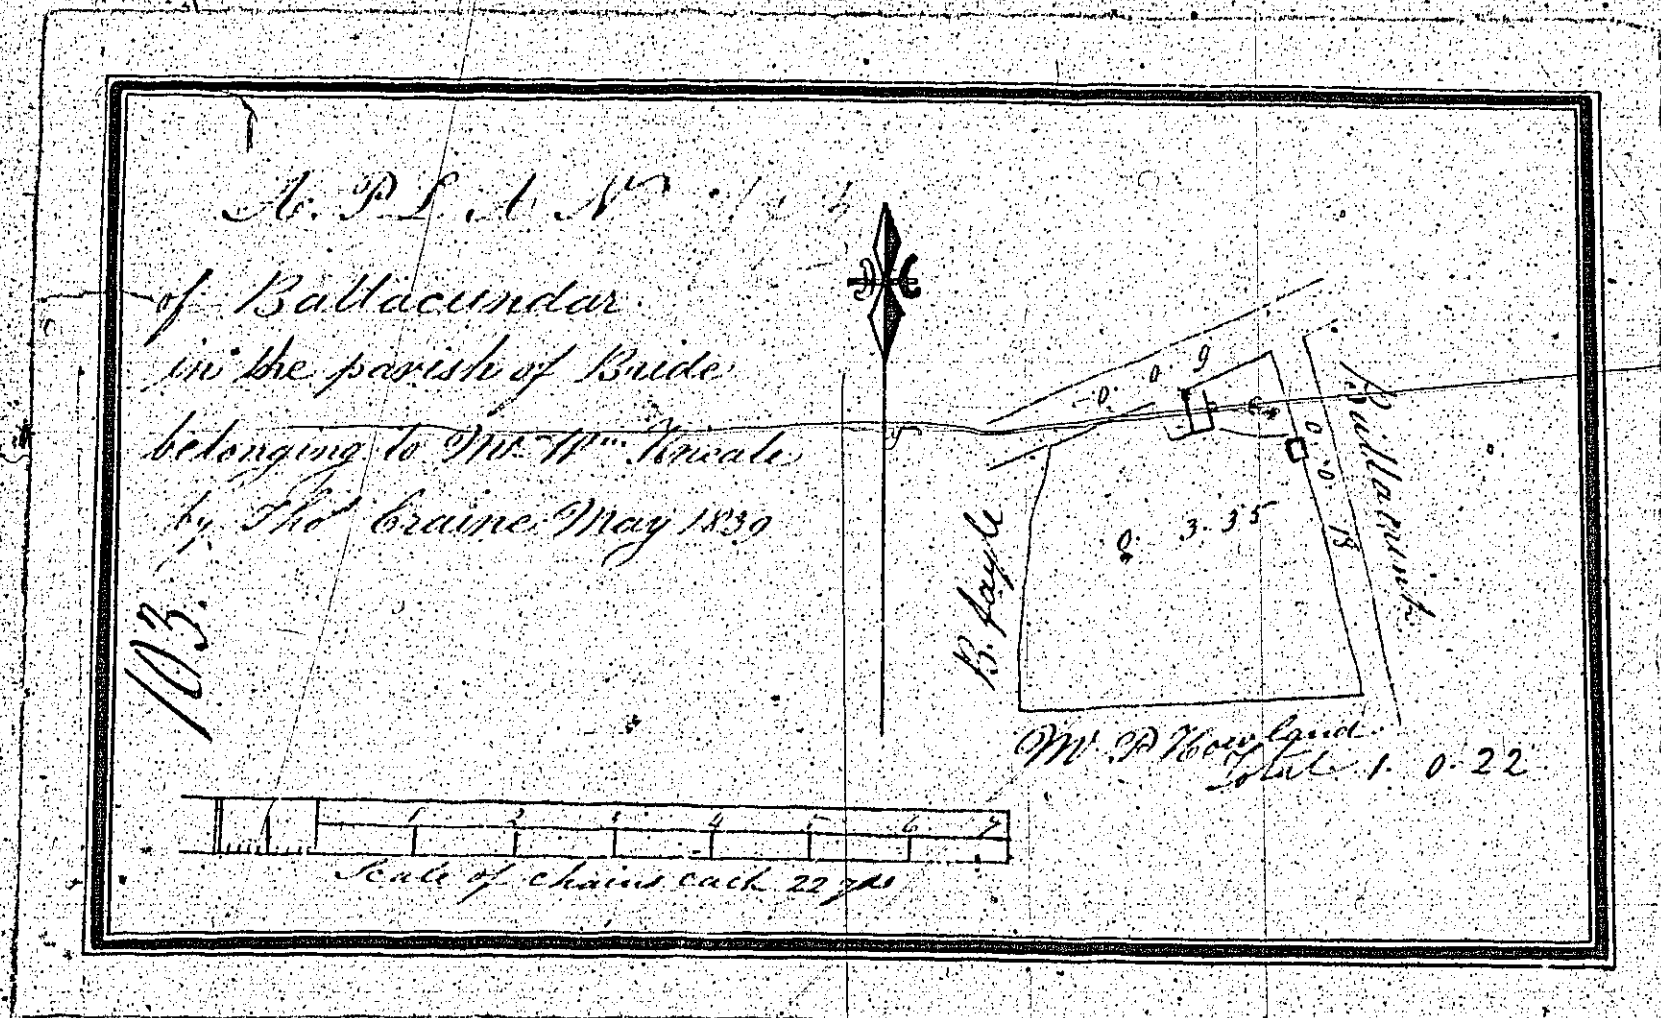 A. P L A N
of Ballacundar
in the parish of Bride
belonging to Mr. Wm. Kneale
by Thos Craine May 1839
103.
0. 0. 9
0. 0. 18
0. 3. 35
B. fayle
Mr. P
land
Total 1. 0. 22
1 2 3 4 5 6 7
Scale of chains each 22 yds